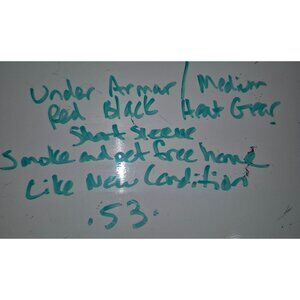 Under Armar / Medium
Red Black Heat Grear
Short Sleeve
Smoke and pet free home
Like New Condition
.53.